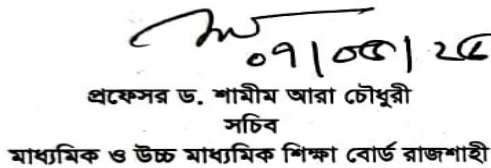 ০৭/০৫/২৫
প্রফেসর ড. শামীম আরা চৌধুরী
সচিব
মাধ্যমিক ও উচ্চ মাধ্যমিক শিক্ষা বোর্ড রাজশাহী